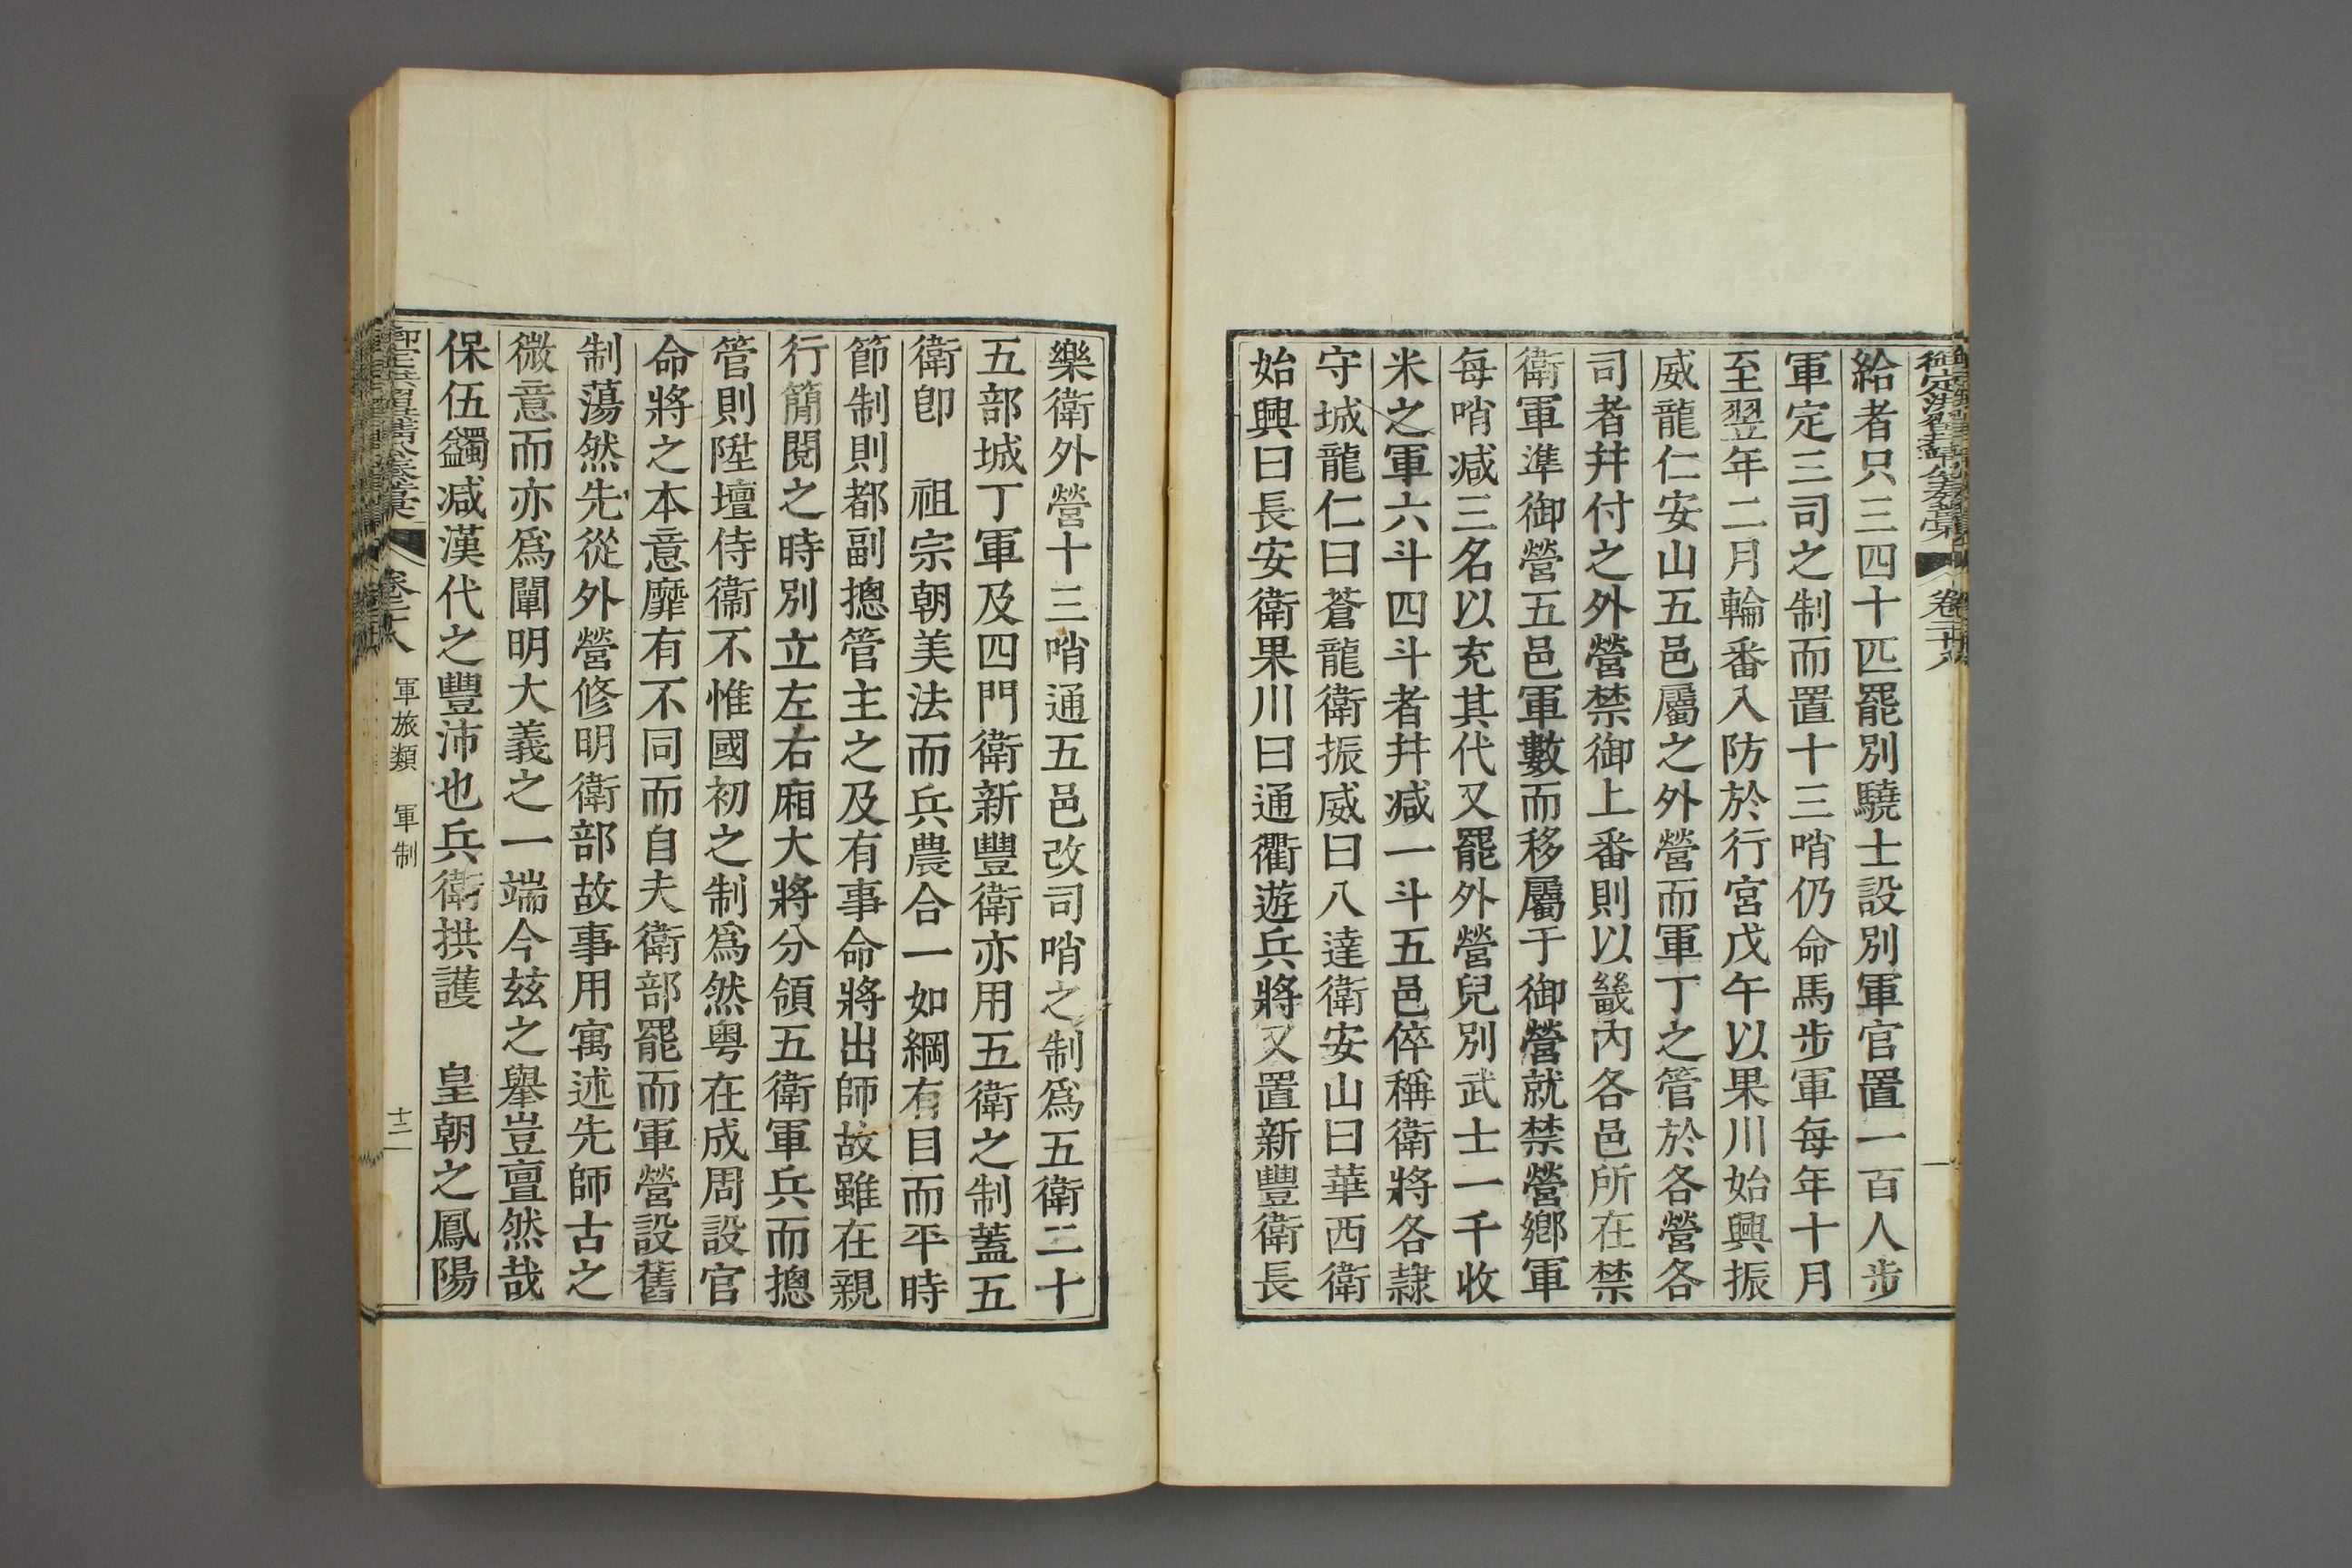 給者只三四十匹罷別驍士設別軍官置一百人步
軍定三司之制而置十三哨仍命馬步軍每年十月
至翌年二月輪番入防於行宮戊午以果川始興振
威龍仁安山五邑屬之外營而軍丁之管於各營各
司者幷付之外營禁御上番則以畿內各邑所在禁
衛軍準御營五邑軍數而移屬于御營就禁營鄉軍
每哨减三名以充其代又罷外營兒別武士一千收
米之軍六斗四斗者幷减一斗五邑倅稱衛將各隷
守城龍仁曰蒼龍衛振威曰八達衛安山曰華西衛
始興曰長安衛果川曰通衢遊兵將又置新豐衛長
樂衛外營十三哨通五邑改司哨之制爲五衛二十
五部城丁軍及四門衛新豐衛亦用五衛之制蓋五
衛卽 祖宗朝美法而兵農合一如綱有目而平時
節制則都副摠管主之及有事命將出師故雖在親
行簡閱之時別立左右廂大將分領五衛軍兵而摠
管則陞壇侍衞不惟國初之制爲然粤在成周設官
命將之本意靡有不同而自夫衛部罷而軍營設舊
制蕩然先從外營修明衛部故事用寓述先師古之
微意而亦爲闡明大義之一端今玆之擧豈亶然哉
保伍蠲减漢代之豐沛也兵衛拱護 皇朝之鳳陽
軍旅類 軍制
十三